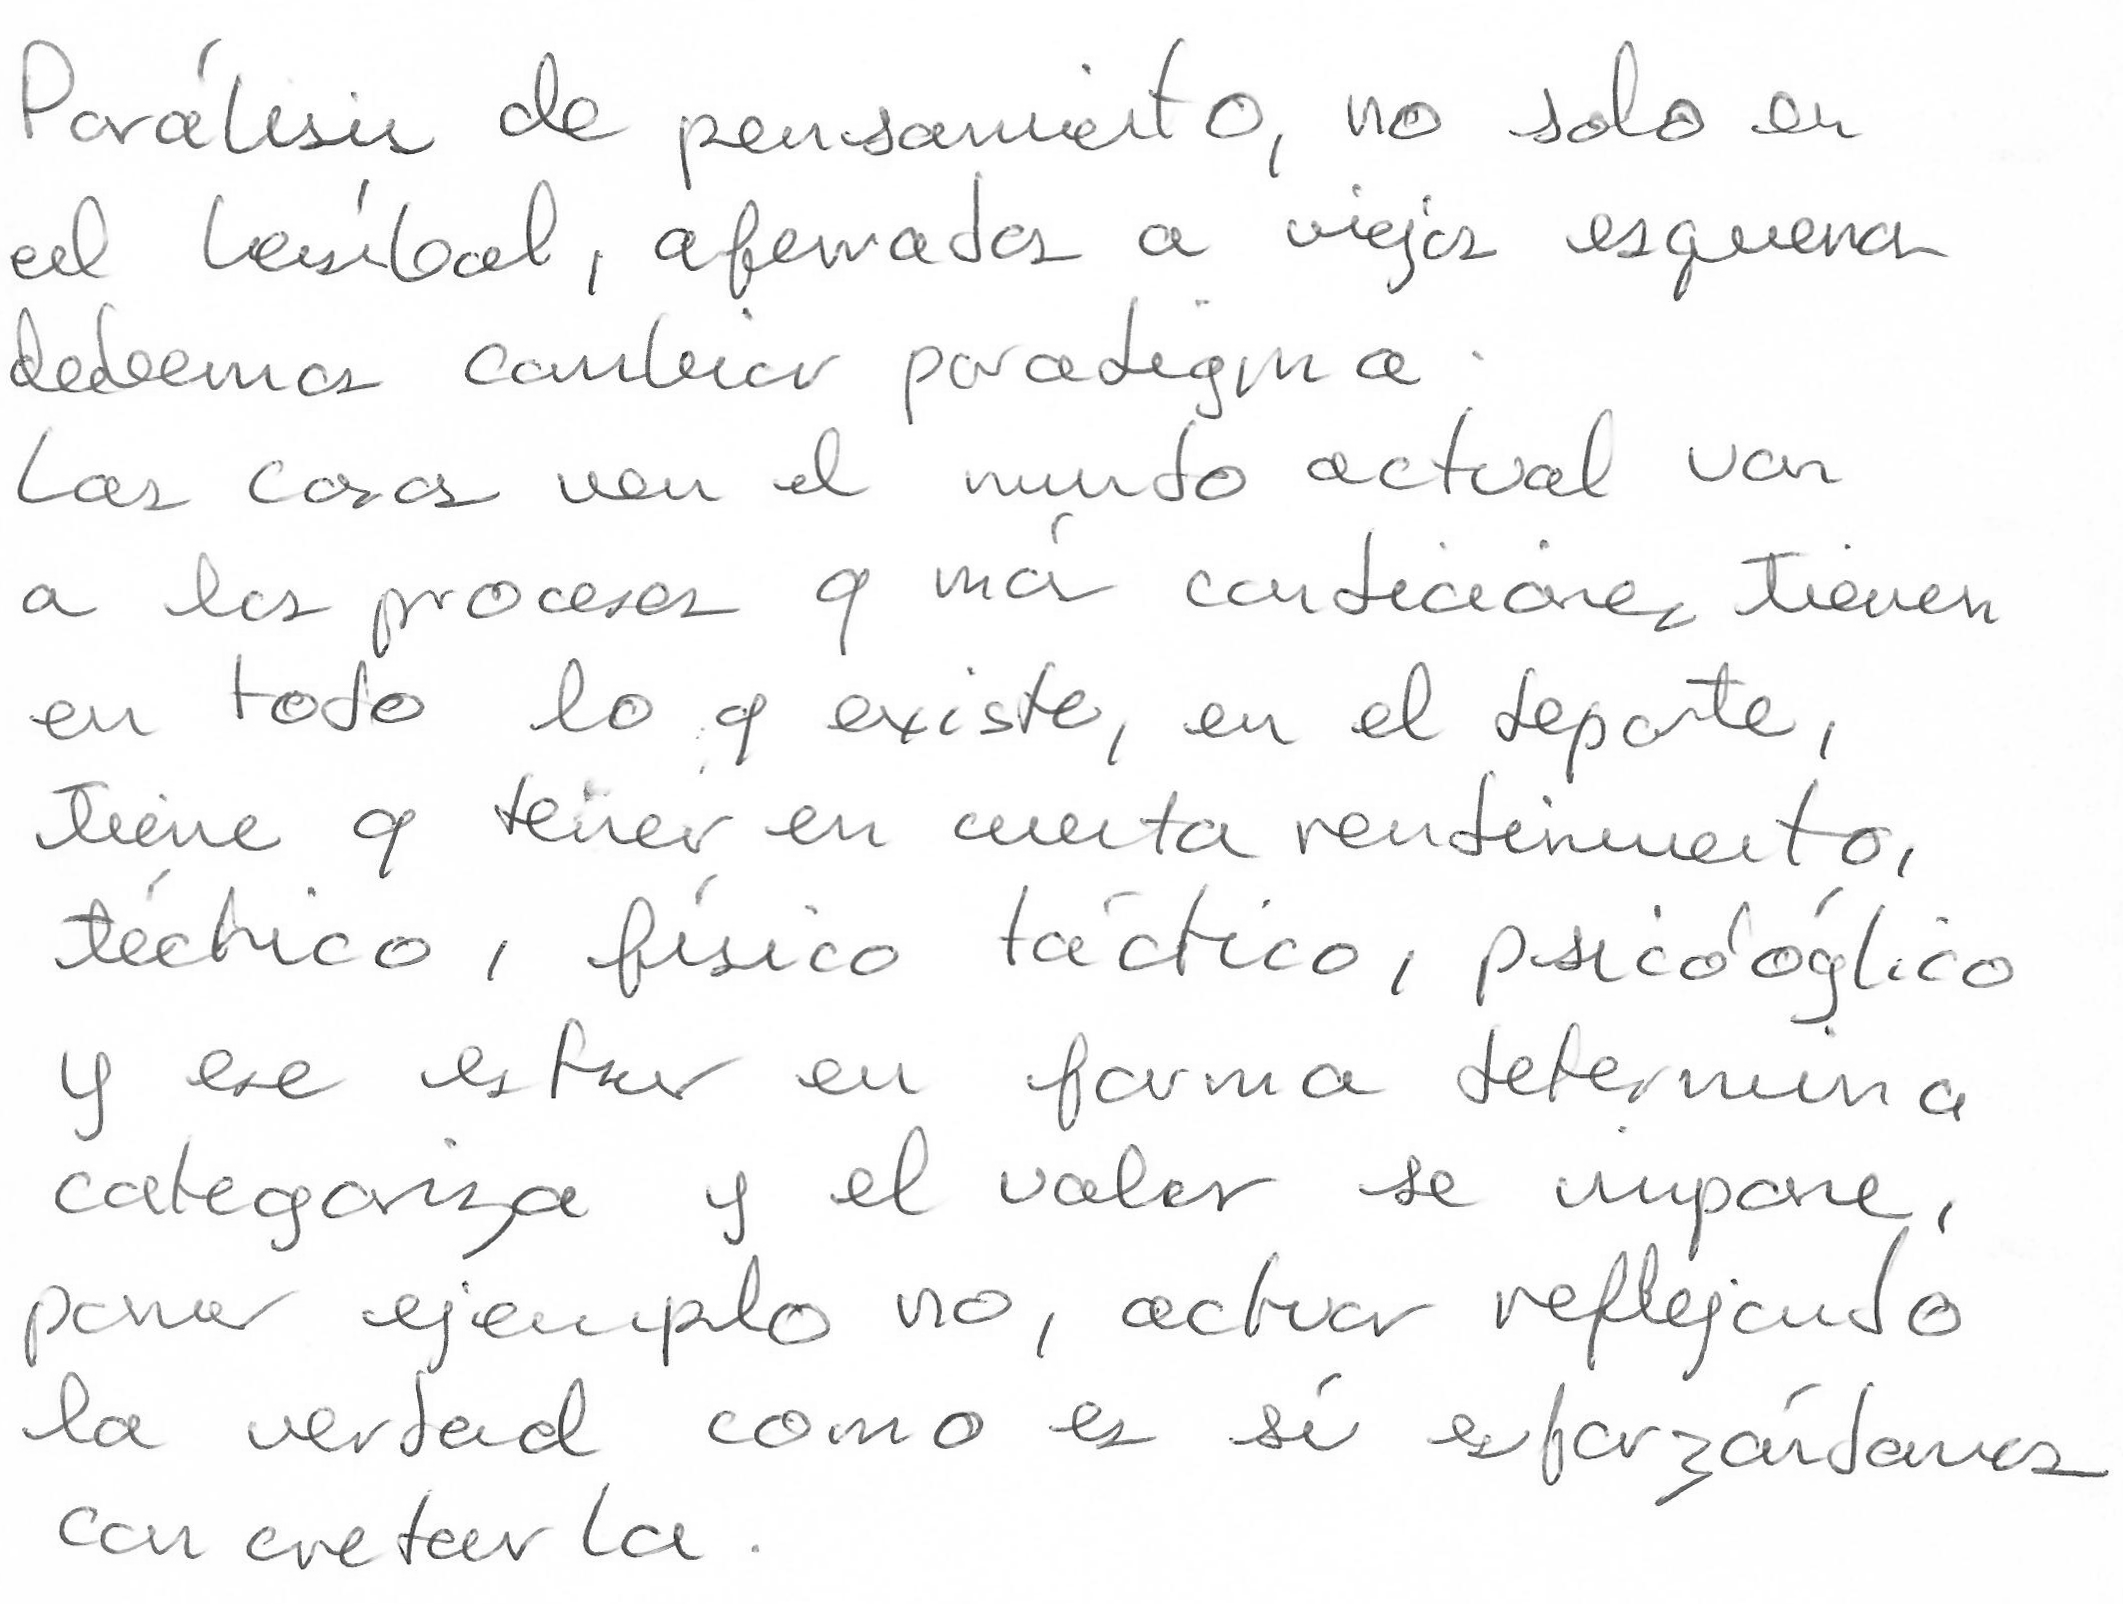 Parálisis de pensamiento, no solo en
el beísbol, aferrados a viejos esquemas
debemos cambiar paradigma.
Las cosas ven el mundo actual van
a los procesos q más condiciones tienen
en todo lo q existe, en el deporte,
tiene q tener en cuenta rendimiento,
técnico, físico táctico, psicóóglico
y ese estar en forma determina
categoriza y el valor se impone,
poner ejemplo no, actuar reflejando
la verdad como es sí esforzándonos
concretarla.